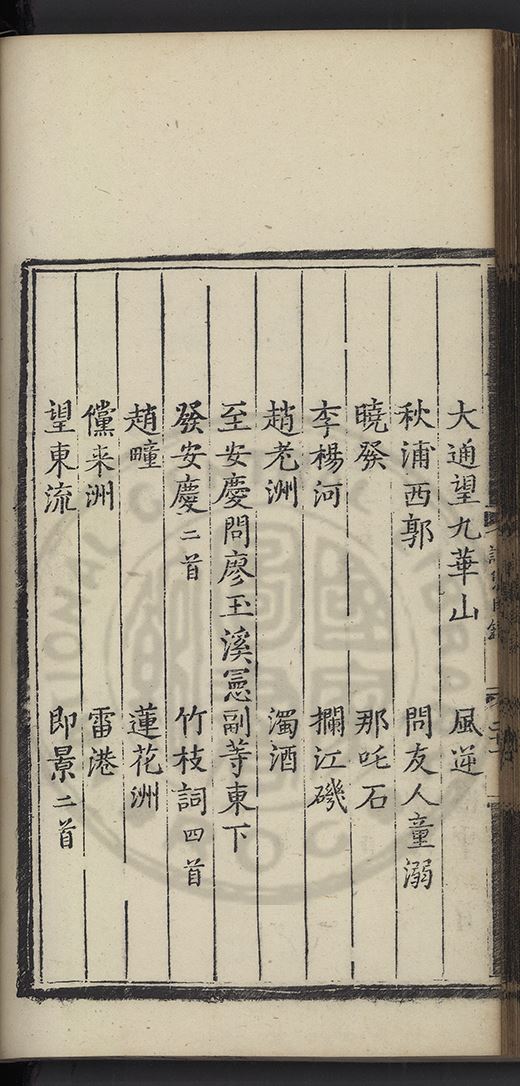 大通望九華山　風逆
秋浦西郭　問友人童溺
曉發　那吒石
李楊河　攔江磯
趙老洲　濁酒
至安慶問廖玉溪憲副等東下
發安慶二首　竹枝詞四首
趙疃　蓮花洲
儻来洲　雷港
望東流　即景二首